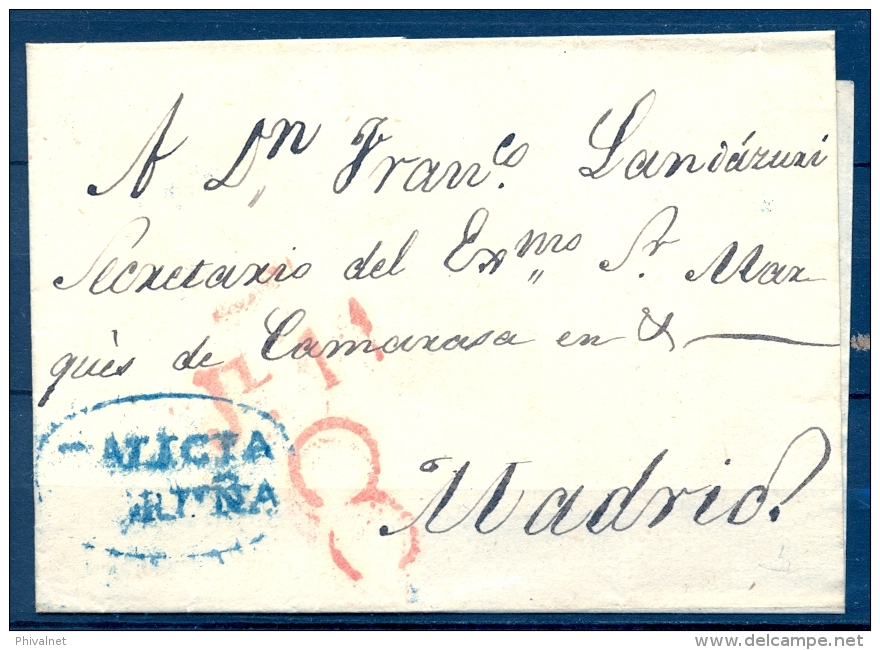 A Dn Franco. Landázuri
Secretario del Exmo Sr. Mar
qués de Camarasa en &
ALICIA
Ñ A
8
Madrid.
Phivalnet
www.delcampe.net